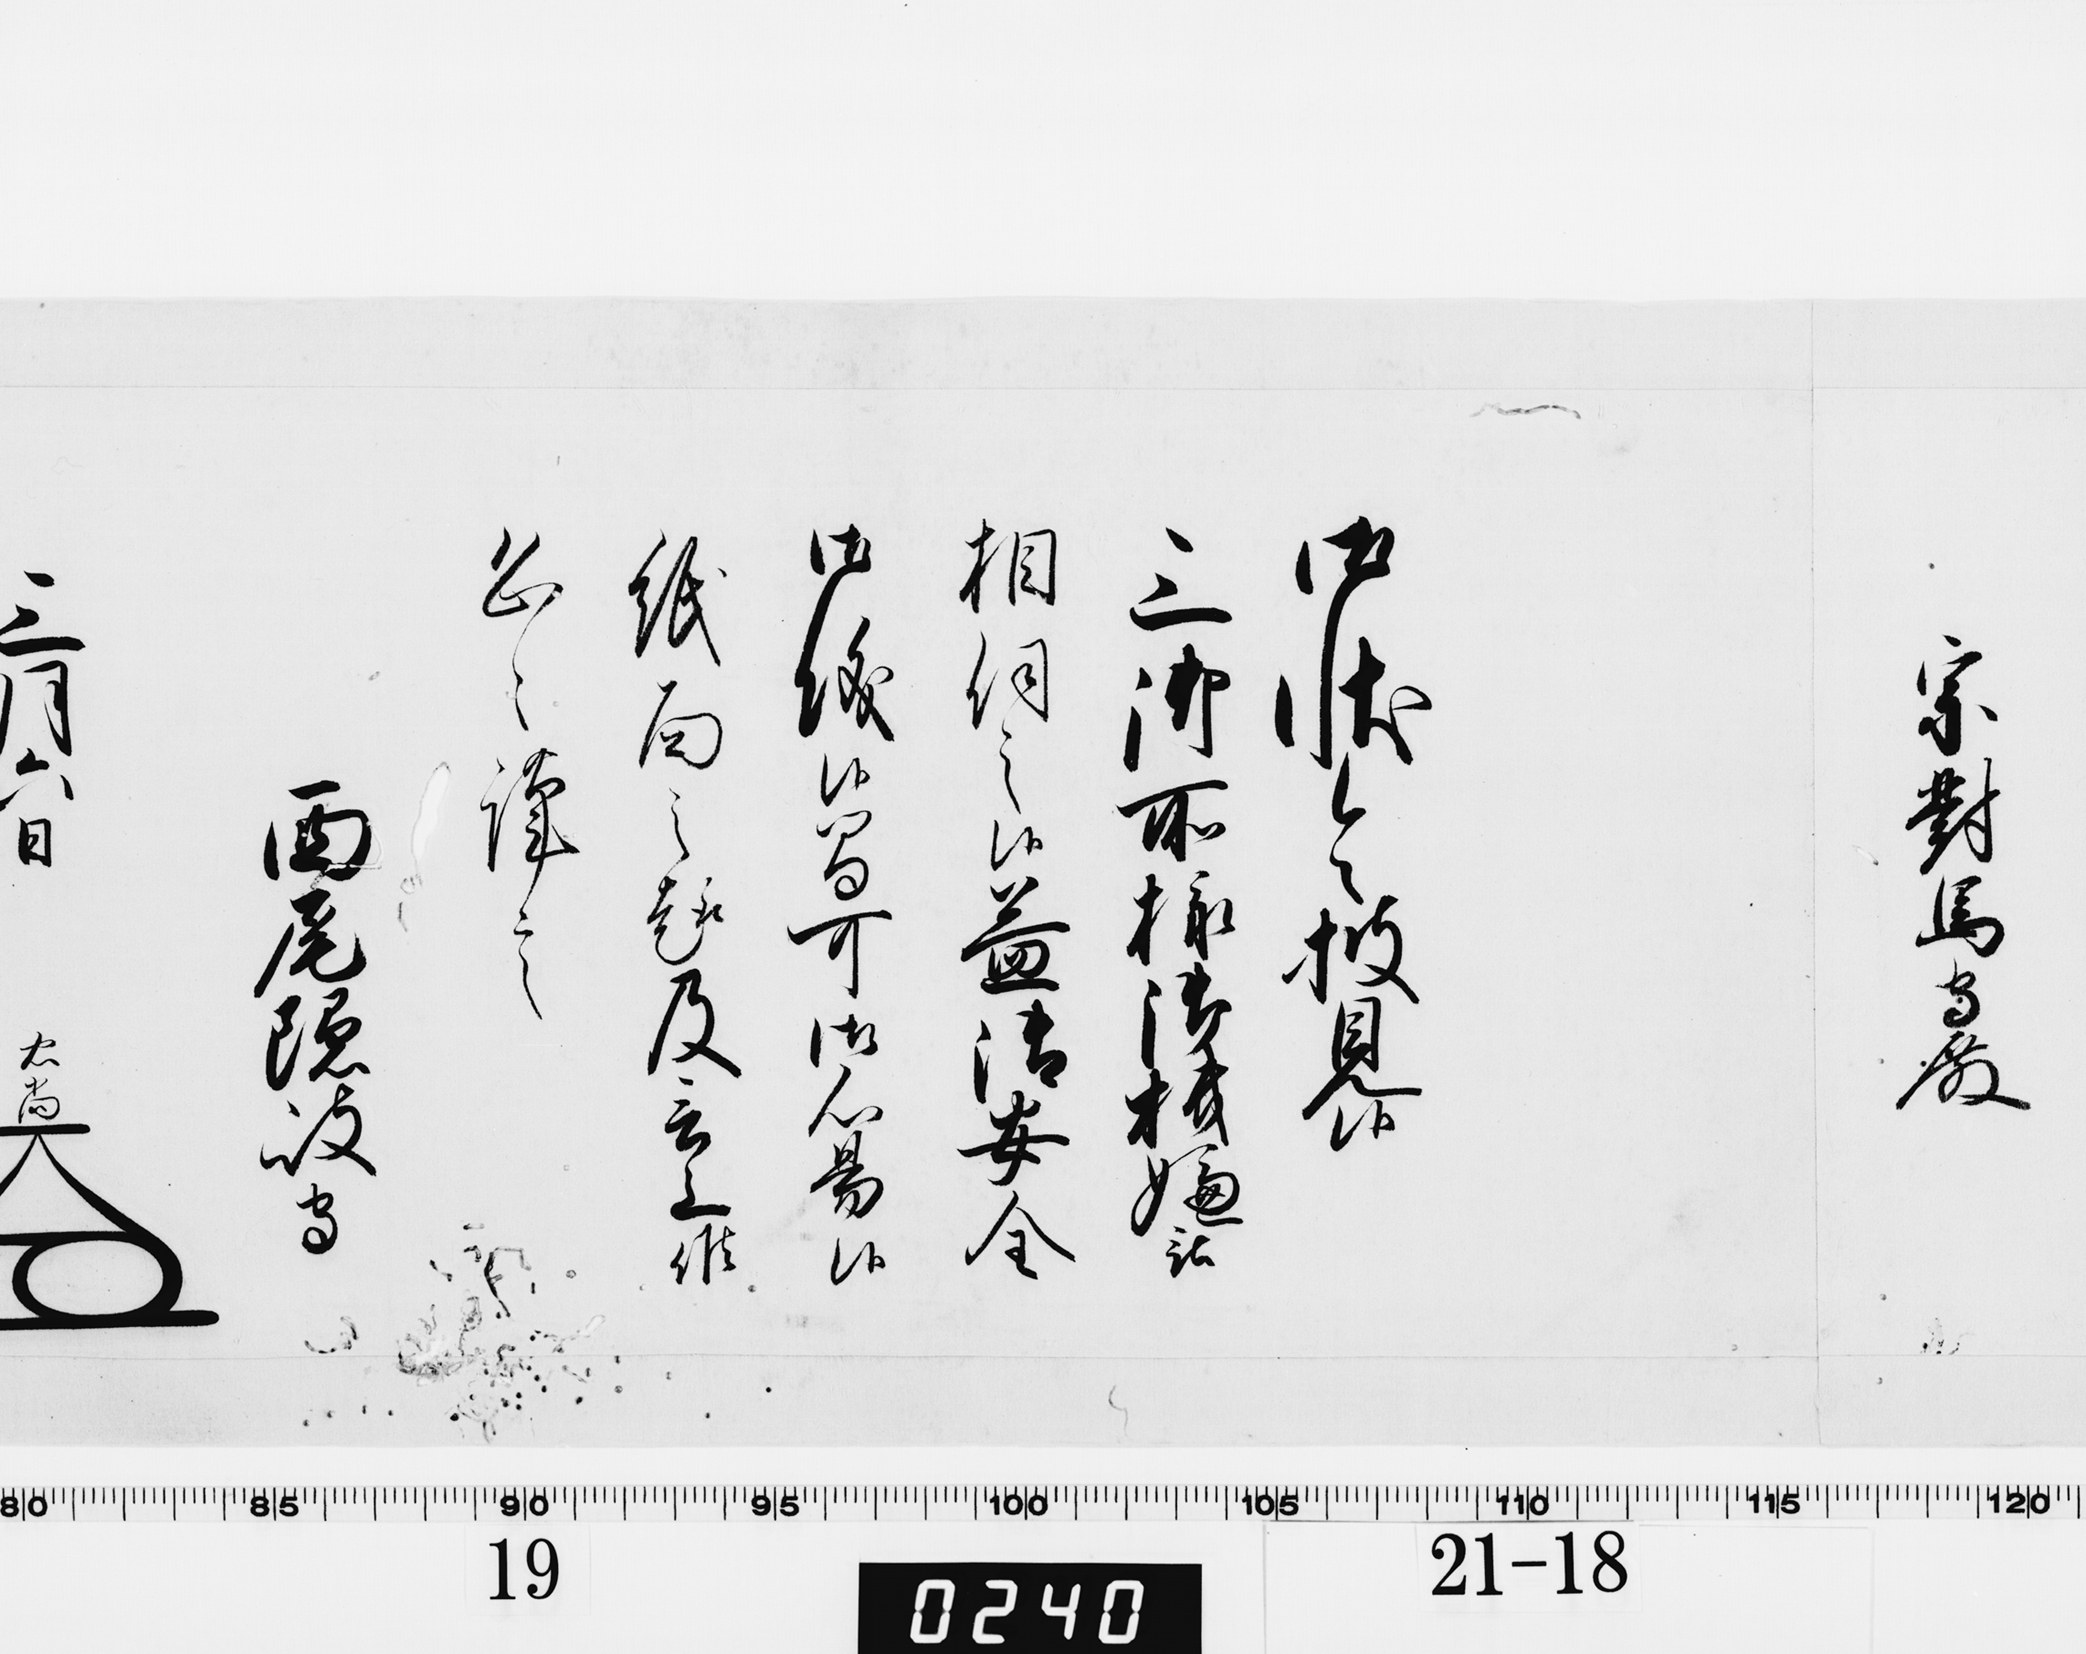 宗對馬守殿
御状令披見候
三御所様御機嫌話
相伺之候益御安全
御儀候間可御心易候
紙面之趣及言上候
恐々謹言
西尾隠岐守
三月六日
忠尚
80 85 90 95 100 105 110 115 120
19
0240
21-18